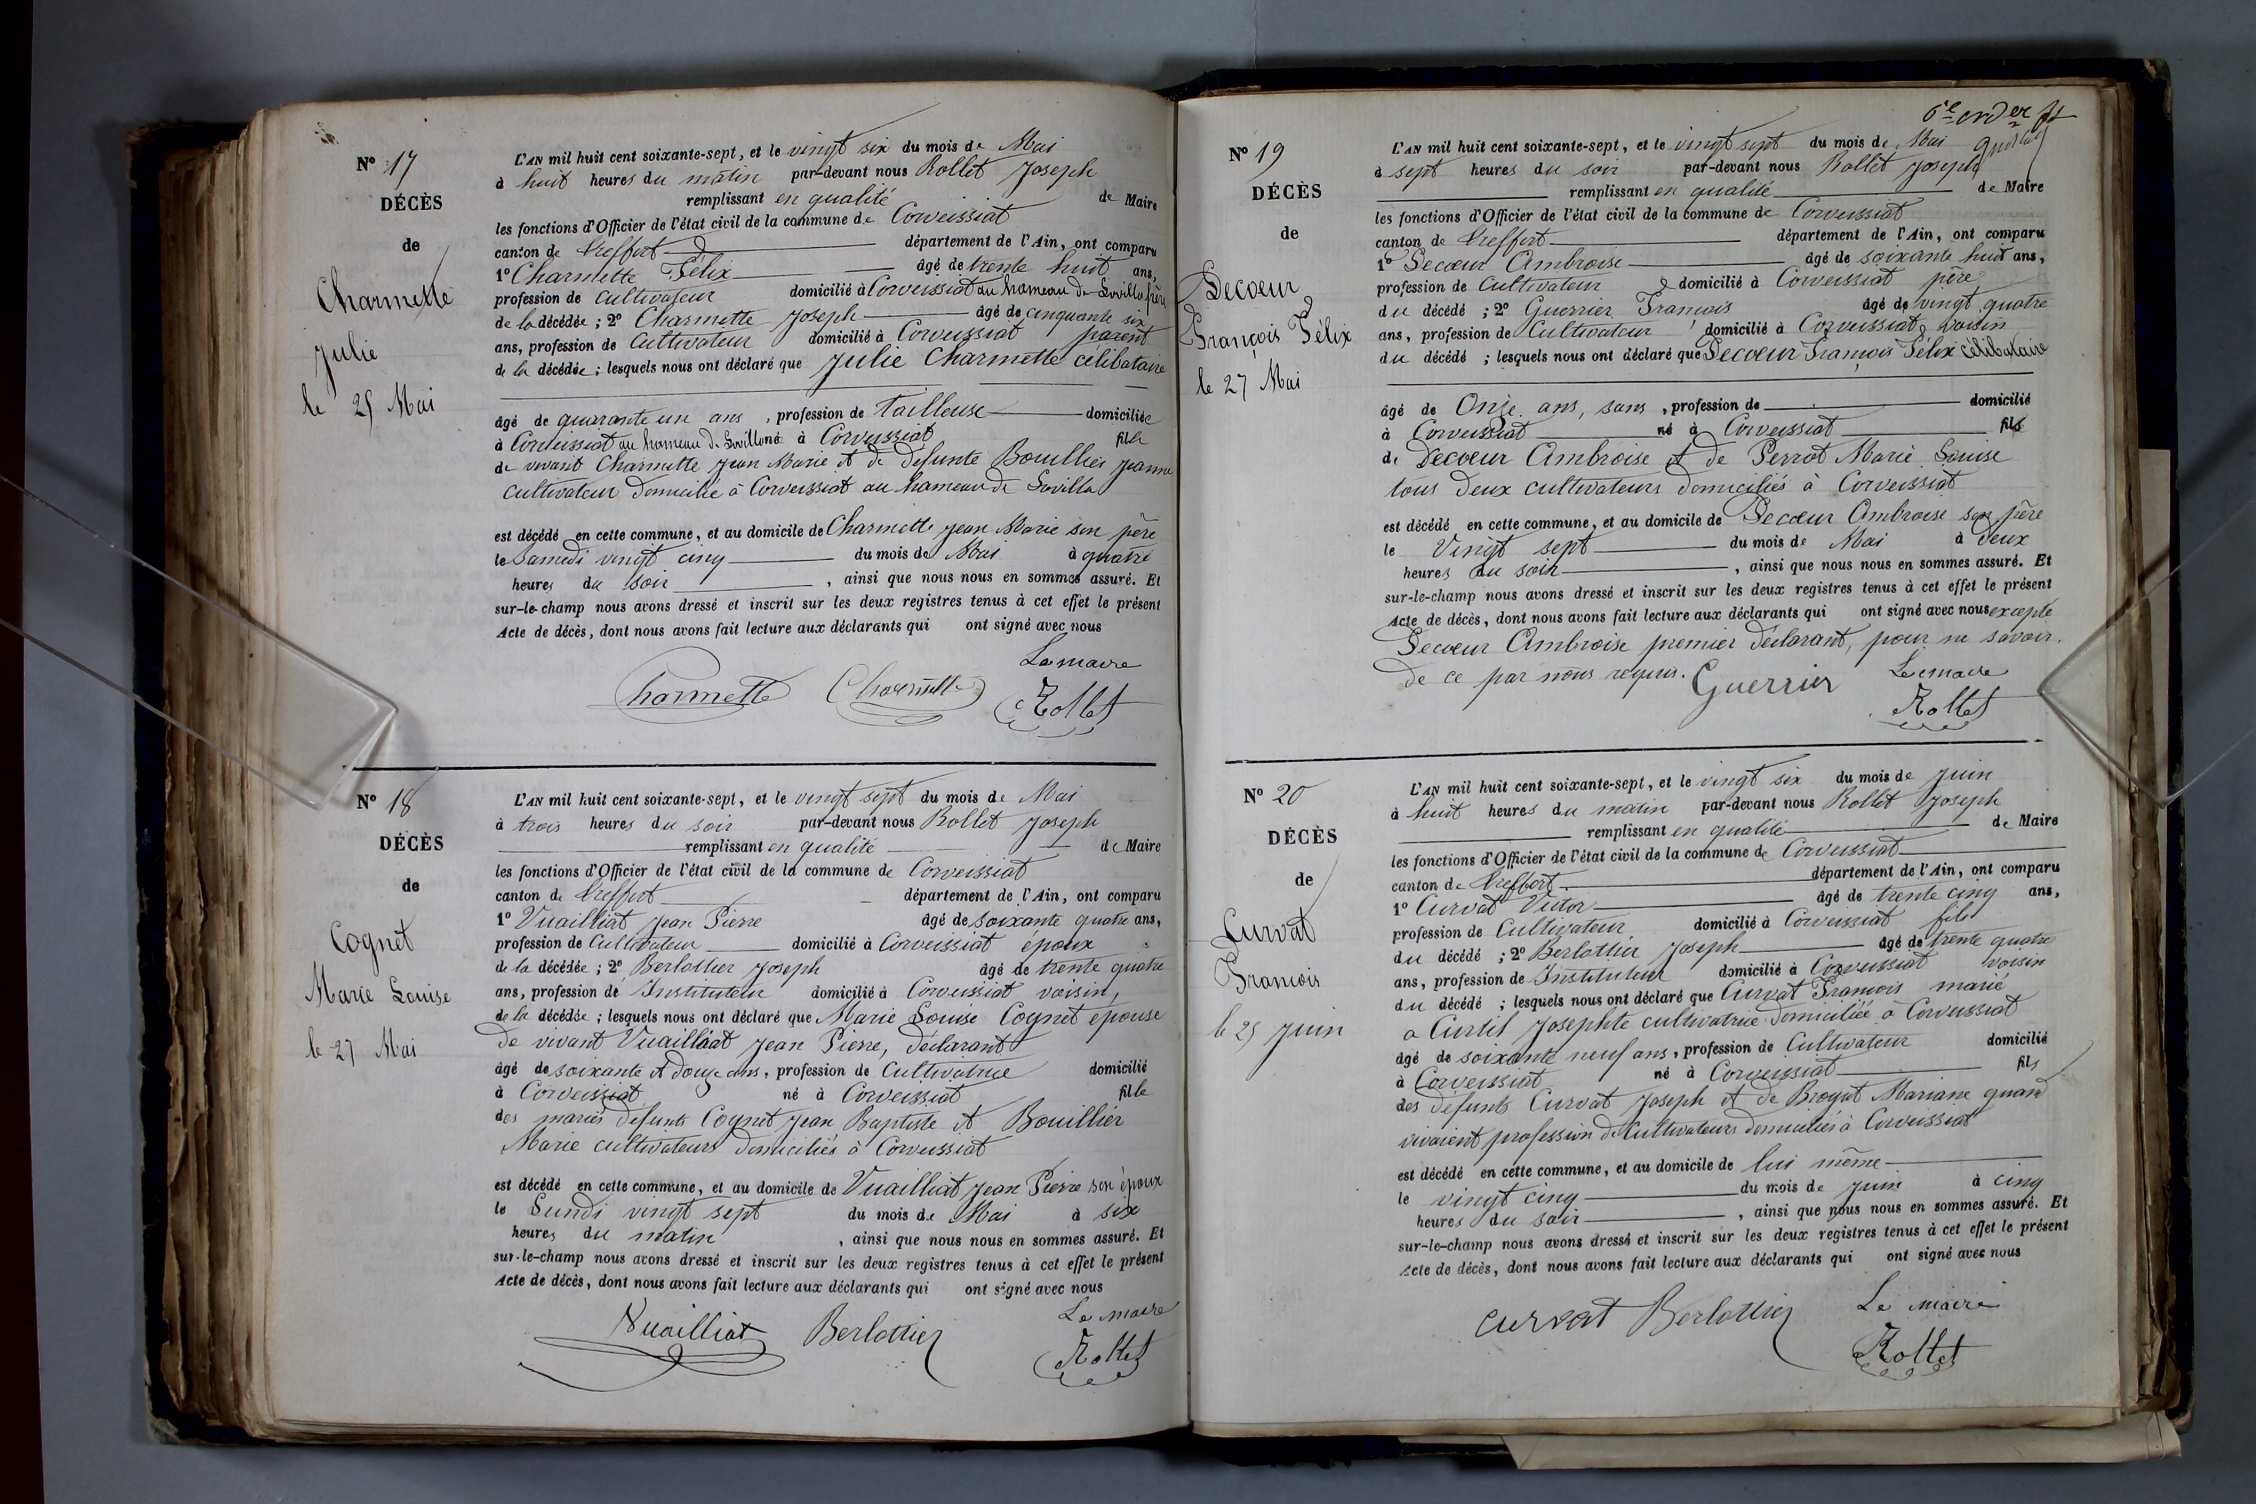 Nº 17
DÉCÈS
de
Charmette
Julie
le 25 Mai
L'AN mil huit cent soixante-sept, et le vingt six du mois de Mai
à huit heures du matin par-devant nous Rollet Joseph
remplissant en qualité de Maire
les fonctions d'Officier de l'état civil de la commune de Corveissiat
canton de Treffort département de l'Ain, ont comparu
1º Charmette Félix âgé de trente huit ans,
profession de Cultivateur domicilié à Corveissiat au hameau de Sovilla frère
de la décédée ; 2º Charmette Joseph âgé de cinquante six
ans, profession de Cultivateur domicilié à Corveissiat parent
de la décédée ; lesquels nous ont déclaré que Julie Charmette célibataire
âgé de quarante un ans, profession de Tailleuse domiciliée
à Corveissiat au hameau de Sovilla né à Corveissiat fille
de vivant Charmette Jean Marie et de défunte Bouillier Jeanne
cultivateur domicilié à Corveissiat au hameau de Sovilla
est décédé en cette commune, et au domicile de Charmette Jean Marie son père
le Samedi vingt cinq du mois de Mai à quatre
heures du soir , ainsi que nous nous en sommes assuré. Et
sur-le-champ nous avons dressé et inscrit sur les deux registres tenus à cet effet le présent
Acte de décès, dont nous avons fait lecture aux déclarants qui ont signé avec nous
Le maire
Charmette Charmette Rollet
Nº 18
DÉCÈS
de
Cognet
Marie Louise
le 27 Mai
L'AN mil huit cent soixante-sept, et le vingt sept du mois de Mai
à trois heures du soir par-devant nous Rollet Joseph
remplissant en qualité de Maire
les fonctions d'Officier de l'état civil de la commune de Corveissiat
canton de Treffort département de l'Ain, ont comparu
1º Vuailliat Jean Pierre âgé de soixante quatre ans,
profession de Cultivateur domicilié à Corveissiat époux
de la décédée ; 2º Berlottier Joseph âgé de trente quatre
ans, profession de Instituteur domicilié à Corveissiat voisin,
de la décédée ; lesquels nous ont déclaré que Marie Louise Cognet épouse
de vivant Vuailliat Jean Pierre, déclarant
âgé de soixante et douze ans, profession de Cultivatrice domicilié
à Corveissiat né à Corveissiat fille
des mariés défunts Cognet Jean Baptiste et Bouillier
Marie cultivateurs domiciliés à Corveissiat
est décédé en cette commune, et au domicile de Vuailliat Jean Pierre son époux
le Lundi vingt sept du mois de Mai à six
heures du matin , ainsi que nous nous en sommes assuré. Et
sur-le-champ nous avons dressé et inscrit sur les deux registres tenus à cet effet le présent
Acte de décès, dont nous avons fait lecture aux déclarants qui ont signé avec nous
Le maire
Vuailliat Berlottier Rollet
Nº 19
DÉCÈS
de
Decoeur
François Félix
le 27 Mai
L'AN mil huit cent soixante-sept, et le vingt sept du mois de Mai
à sept heures du soir par-devant nous Rollet Joseph
remplissant en qualité de Maire
les fonctions d'Officier de l'état civil de la commune de Corveissiat
canton de Treffort département de l'Ain, ont comparu
1º Decoeur Ambroise âgé de soixante huit ans,
profession de Cultivateur domicilié à Corveissiat père
du décédé ; 2º Guerrier François âgé de vingt quatre
ans, profession de Cultivateur domicilié à Corveissiat voisin
du décédé ; lesquels nous ont déclaré que Decoeur François Félix célibataire
âgé de Onze ans, sans , profession de domicilié
à Corveissiat né à Corveissiat fils
de Decoeur Ambroise et de Perrot Marie Louise
tous deux cultivateurs domiciliés à Corveissiat
est décédé en cette commune, et au domicile de Decoeur Ambroise son père
le Vingt sept du mois de Mai à deux
heures du soir , ainsi que nous nous en sommes assuré. Et
sur-le-champ nous avons dressé et inscrit sur les deux registres tenus à cet effet le présent
Acte de décès, dont nous avons fait lecture aux déclarants qui ont signé avec nous excepté
Decoeur Ambroise premier déclarant, pour ne savoir
de ce par nous requis. Guerrier Le maire
Rollet
Nº 20
DÉCÈS
de
Curvat
François
le 25 Juin
L'AN mil huit cent soixante-sept, et le vingt six du mois de Juin
à huit heures du matin par-devant nous Rollet Joseph
remplissant en qualité de Maire
les fonctions d'Officier de l'état civil de la commune de Corveissiat
canton de Treffort département de l'Ain, ont comparu
1º Curvat Victor âgé de trente cinq ans,
profession de Cultivateur domicilié à Corveissiat fils
du décédé ; 2º Berlottier Joseph âgé de trente quatre
ans, profession de Instituteur domicilié à Corveissiat voisin
du décédé ; lesquels nous ont déclaré que Curvat François marié
a Curtil Josephte cultivatrice domiciliée à Corveissiat
âgé de soixante neuf ans, profession de Cultivateur domicilié
à Corveissiat né à Corveissiat fils
des défunts Curvat Joseph et de Broyat Mariane quand
vivaient profession de Cultivateurs domiciliés à Corveissiat
est décédé en cette commune, et au domicile de lui même
le vingt cinq du mois de Juin à cinq
heures du soir , ainsi que nous nous en sommes assuré. Et
sur-le-champ nous avons dressé et inscrit sur les deux registres tenus à cet effet le présent
Acte de décès, dont nous avons fait lecture aux déclarants qui ont signé avec nous
Curvat Berlottier Le maire
Rollet